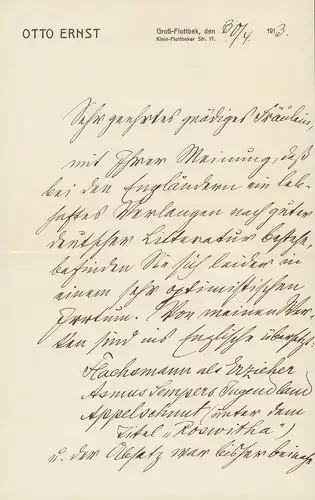 OTTO ERNST
Groß-Flottbek, den 30/4 1913.
Klein-Flottbeker Str. 17.
Sehr geehrtes gnädiges Fräulein,
mit Ihrer Meinung, daß
bei den Engländern ein leb-
haftes Verlangen nach guter
deutscher Litteratur bestehe,
befinden Sie sich leider in
einem sehr optimistischen
Irrtum. Von meinen Wer-
ken sind ins Englische übersetzt:
Flachsmann als Erzieher
Asmus Sempers Jugendland
Appelschnut (unter dem
Titel „Roswitha")
u. der Absatz war bisher beinahe